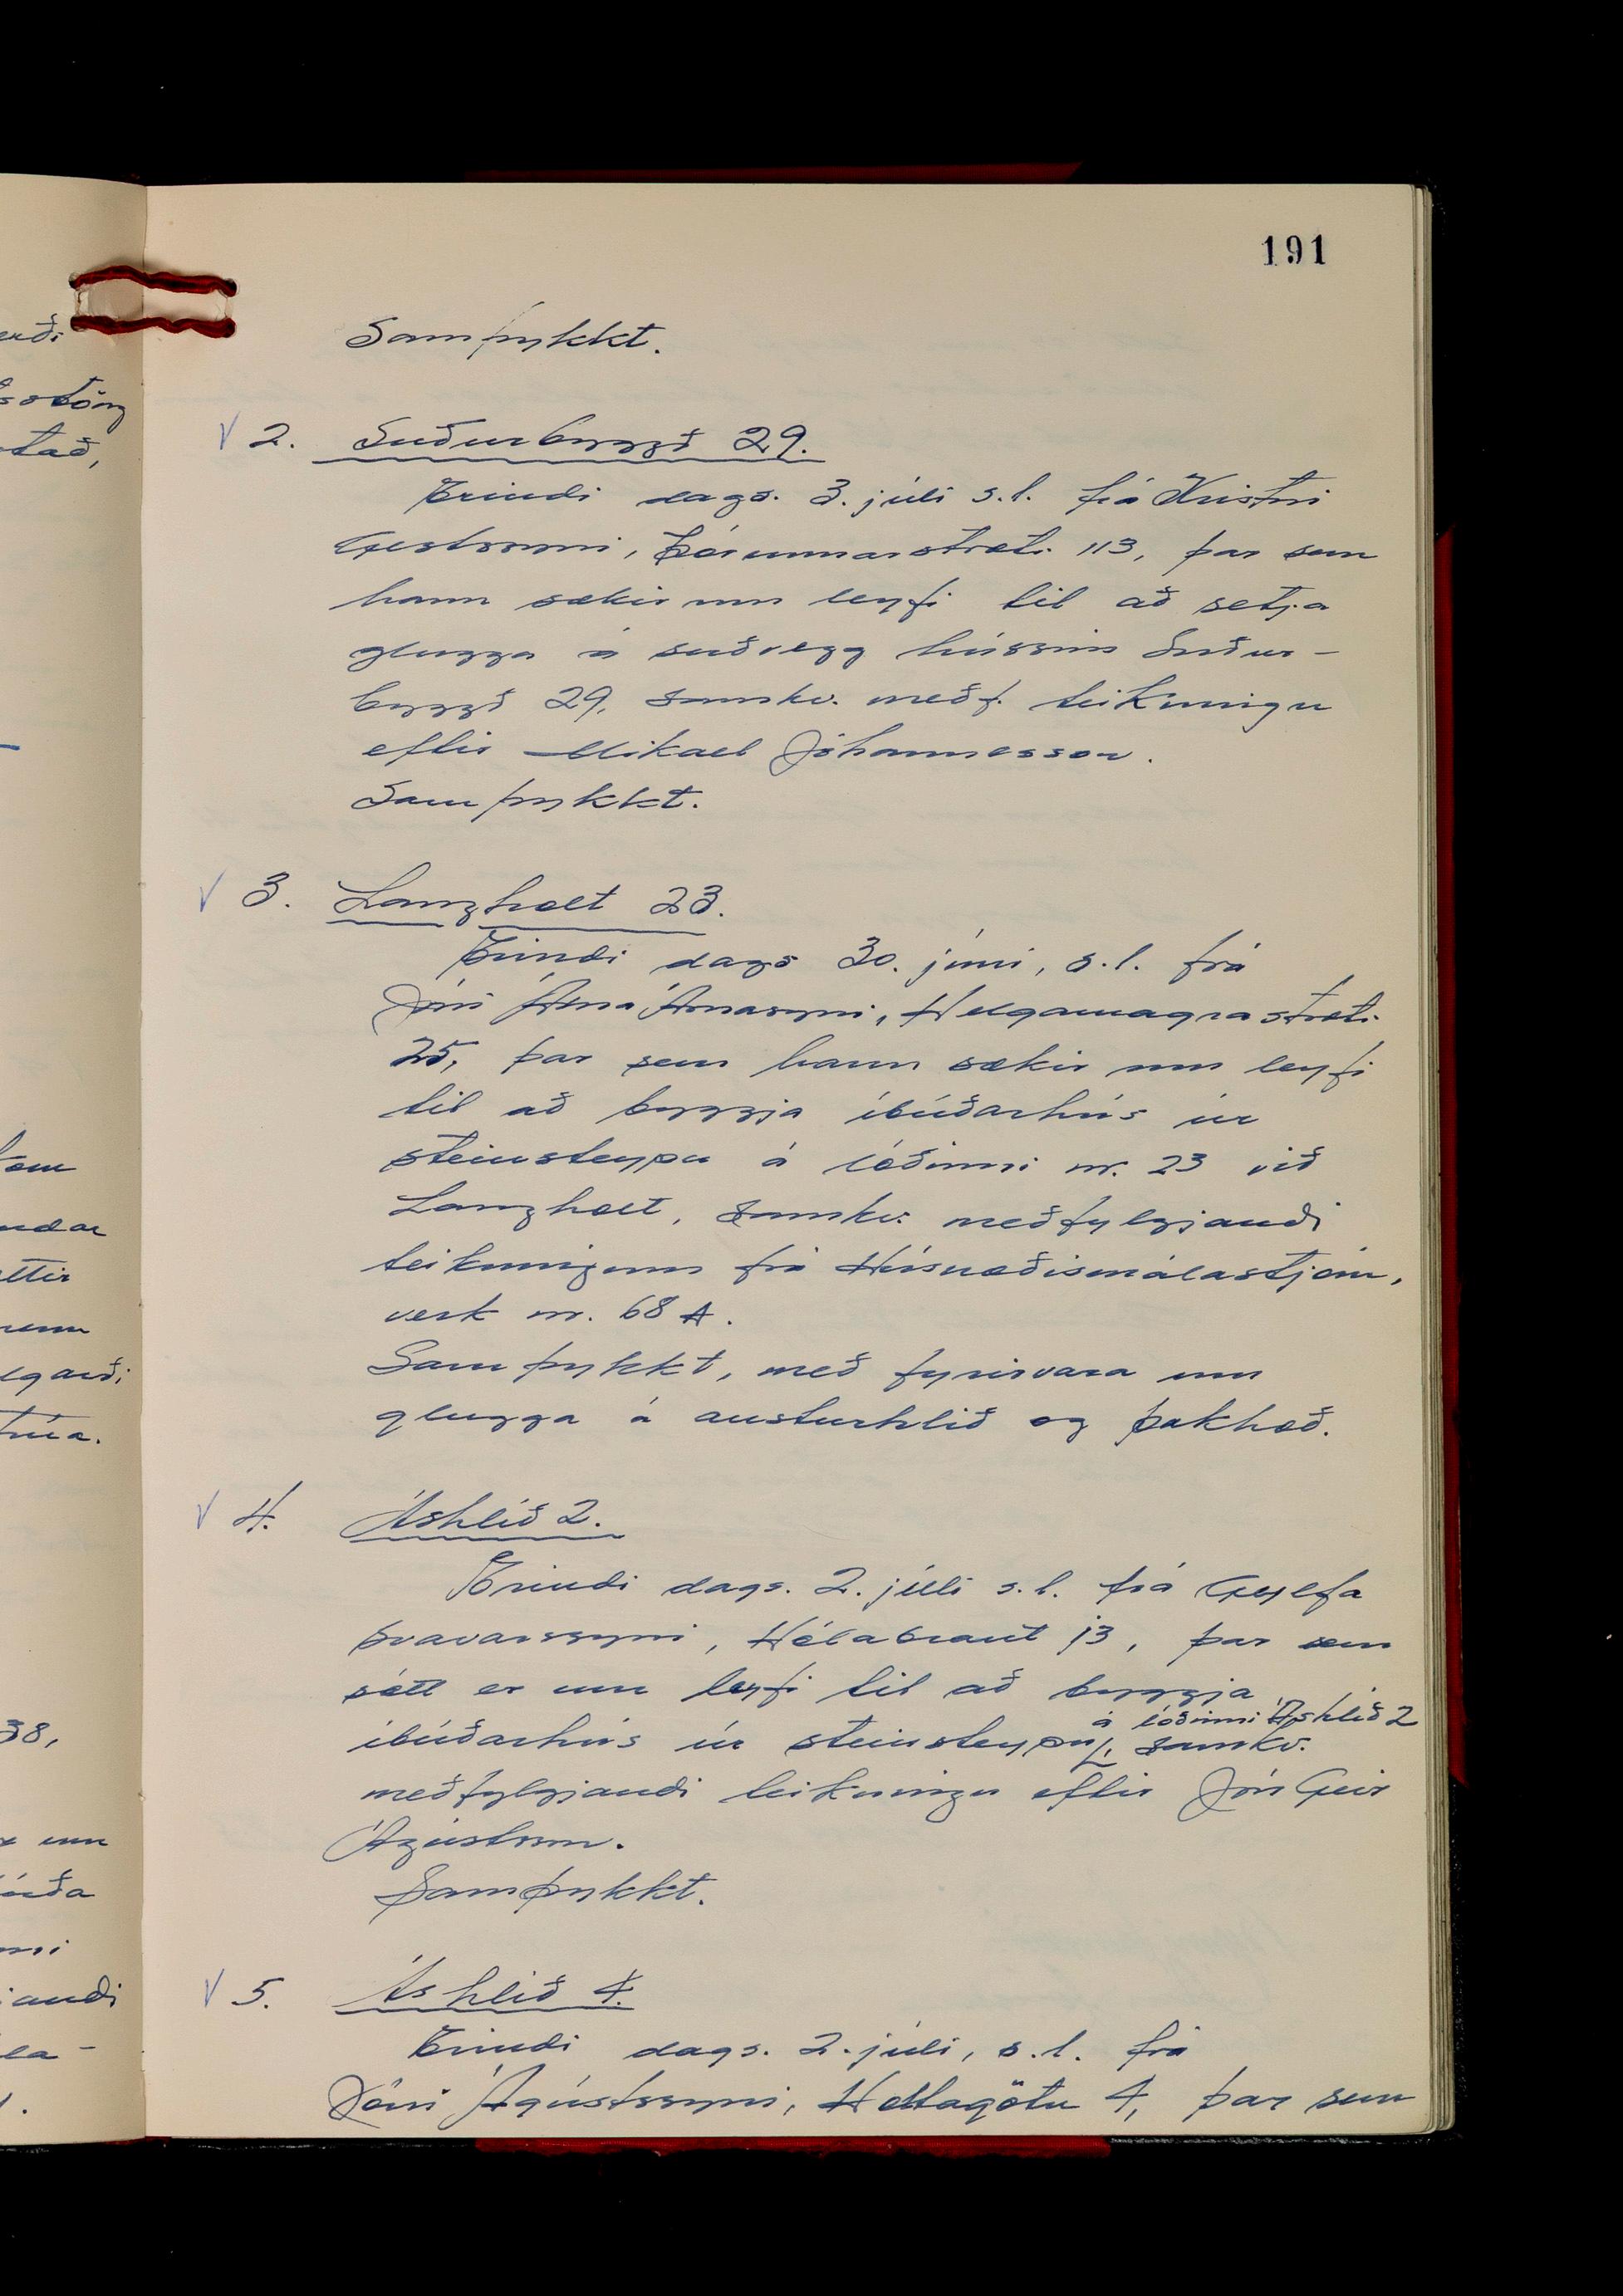 191
Samþykkt.
V 2. Suðurbyggð 29.
Erindi dags. 3. júlí s.l. frá Kristni
Gestssyni, Þórunnarstræti 113, þar sem
hann sækir um leyfi til að setja
glugga á suðvegg hússins Suður-
byggð 29, samkv. meðf. teikningu
eftir Mikael Jóhannesson.
Samþykkt.
V 3. Langholt 23.
Erindi dags 30. júní, s.l. frá
Jóni Árna Árnasyni, Helgamagrastræti
25, þar sem hann sækir um leyfi
til að byggja íbúðarhús úr
steinsteypu á lóðinni nr. 23 við
Langholt, samkv. meðfylgjandi
teikningum frá Húsnæðismálastjórn,
verk nr. 68 A.
Samþykkt, með fyrirvara um
glugga á austurhlið og þakhæð.
V 4. Áshlíð 2.
Erindi dags. 2. júlí s.l. frá Gylfa
Svavarssyni, Hólabraut 13, þar sem
sótt er um leyfi til að byggja
á lóðinni Áshlíð 2
íbúðarhús úr steinsteypu, samkv.
meðfylgjandi teikningu eftir Jón Geir
Ágústsson.
Samþykkt.
V 5. Áshlíð 4.
Erindi dags. 2. júlí, s.l. frá
Jóni Ágústssyni, Holtagötu 4, þar sem
stöng
38,